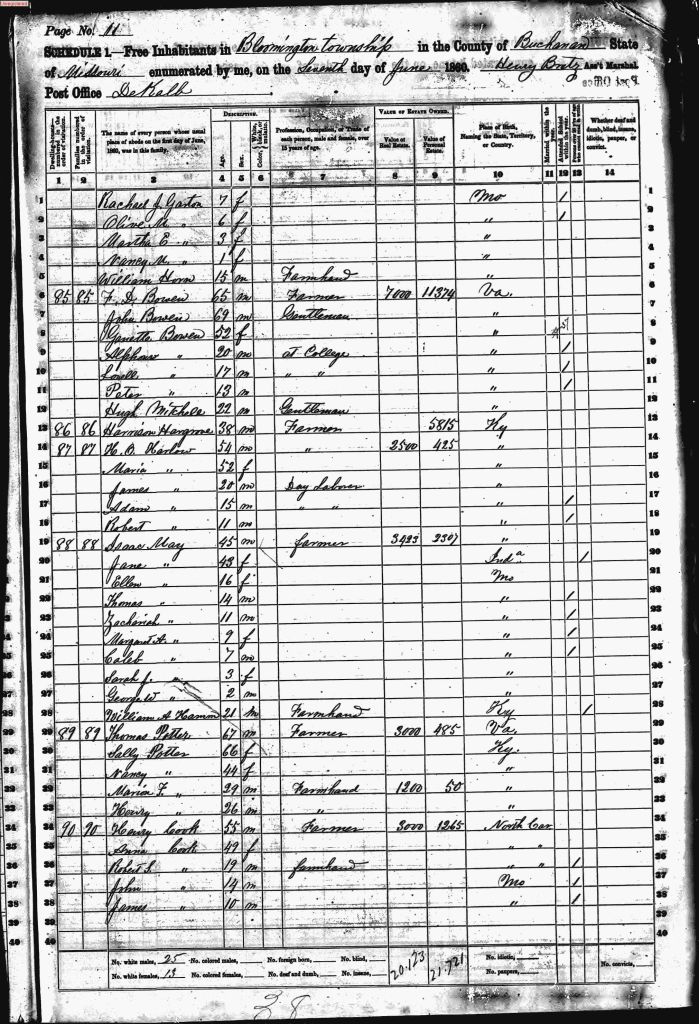 Page No. 11
SCHEDULE 1.—Free Inhabitants in Bloomington township in the County of Buchanan State
of Missouri enumerated by me, on the Seventh day of June 1860. Henry Bretz Ass't Marshal
Post Office DeKalb
DESCRIPTION. VALUE OF ESTATE OWNED.
Dwelling-houses—numbered in the order of visitation. Families numbered in the order of visitation. The name of every person whose usual place of abode on the first day of June, 1860, was in this family. Age. Sex. Color, Profession, Occupation, or Trade of each person, male and female, over 15 years of age. Value of Real Estate. Value of Personal Estate. Place of Birth, Naming the State, Territory, or Country. Married within the year. Whether deaf and dumb, blind, insane, idiotic, pauper, or convict.
1 2 3 4 5 6 7 8 9 10 11 12 13 14
1 Rachael J Gaston 7 f Mo / 1
2 Olive M. " 6 f " / 2
3 Martha E " 3 f " 3
4 Nancy M " 1 f " 4
5 William Horn 15 m Farmhand " 5
6 85 85 F. D. Bowen 65 m Farmer 7000 11374 Va. 6
7 John Bowen 69 m Gentleman " 7
8 Bowen 52 f " 8
9 Alphonso " 20 m at College " / 9
10 Lovell " 17 m " " " / 10
11 Peter " 13 m " / 11
12 Hugh 22 m Gentleman " 12
13 86 86 Harrison Hargrove 38 m Farmer 5815 Ky 13
14 87 87 H. B. Harlow 54 m " 2500 425 " 14
15 Maria " 52 f " 15
16 James " 20 m Day Laborer " 16
17 Adam " 15 m " " " / 17
18 Robert " 11 m " / 18
19 88 88 Isaac May 45 m farmer 3423 2307 " 19
20 Jane " 43 f Inda / 20
21 Ellen " 16 f Mo 21
22 Thomas " 14 m " / 22
23 Zachariah " 11 m " / 23
24 Margaret A. " 9 f " / 24
25 Caleb " 7 m " / 25
26 Sarah J. " 3 f " 26
27 George W " 2 m " 27
28 William A Hamm 21 m Farmhand Ky / 28
29 89 89 Thomas Potter 67 m Farmer 3000 485 Va. 29
30 Sally Potter 66 f Ky. 30
31 Nancy " 44 f " 31
32 Marion F. " 29 m Farmhand 1200 50 " 32
33 Henry " 26 m " " 33
34 90 90 Henry Cook 55 m Farmer 3000 1265 North Car 34
35 Anna Cook 49 f " " 35
36 Robert S. " 19 m farmhand " " / 36
37 John " 14 m Mo / 37
38 James " 10 m " / 38
39 39
40 40
No. white males, 25 No. colored males, No. foreign born, No. blind, 20.123 21.721 No. idiotic, No. convicts,
No. white females, 13 No. colored females, No. deaf and dumb, No. insane, No. paupers,
38